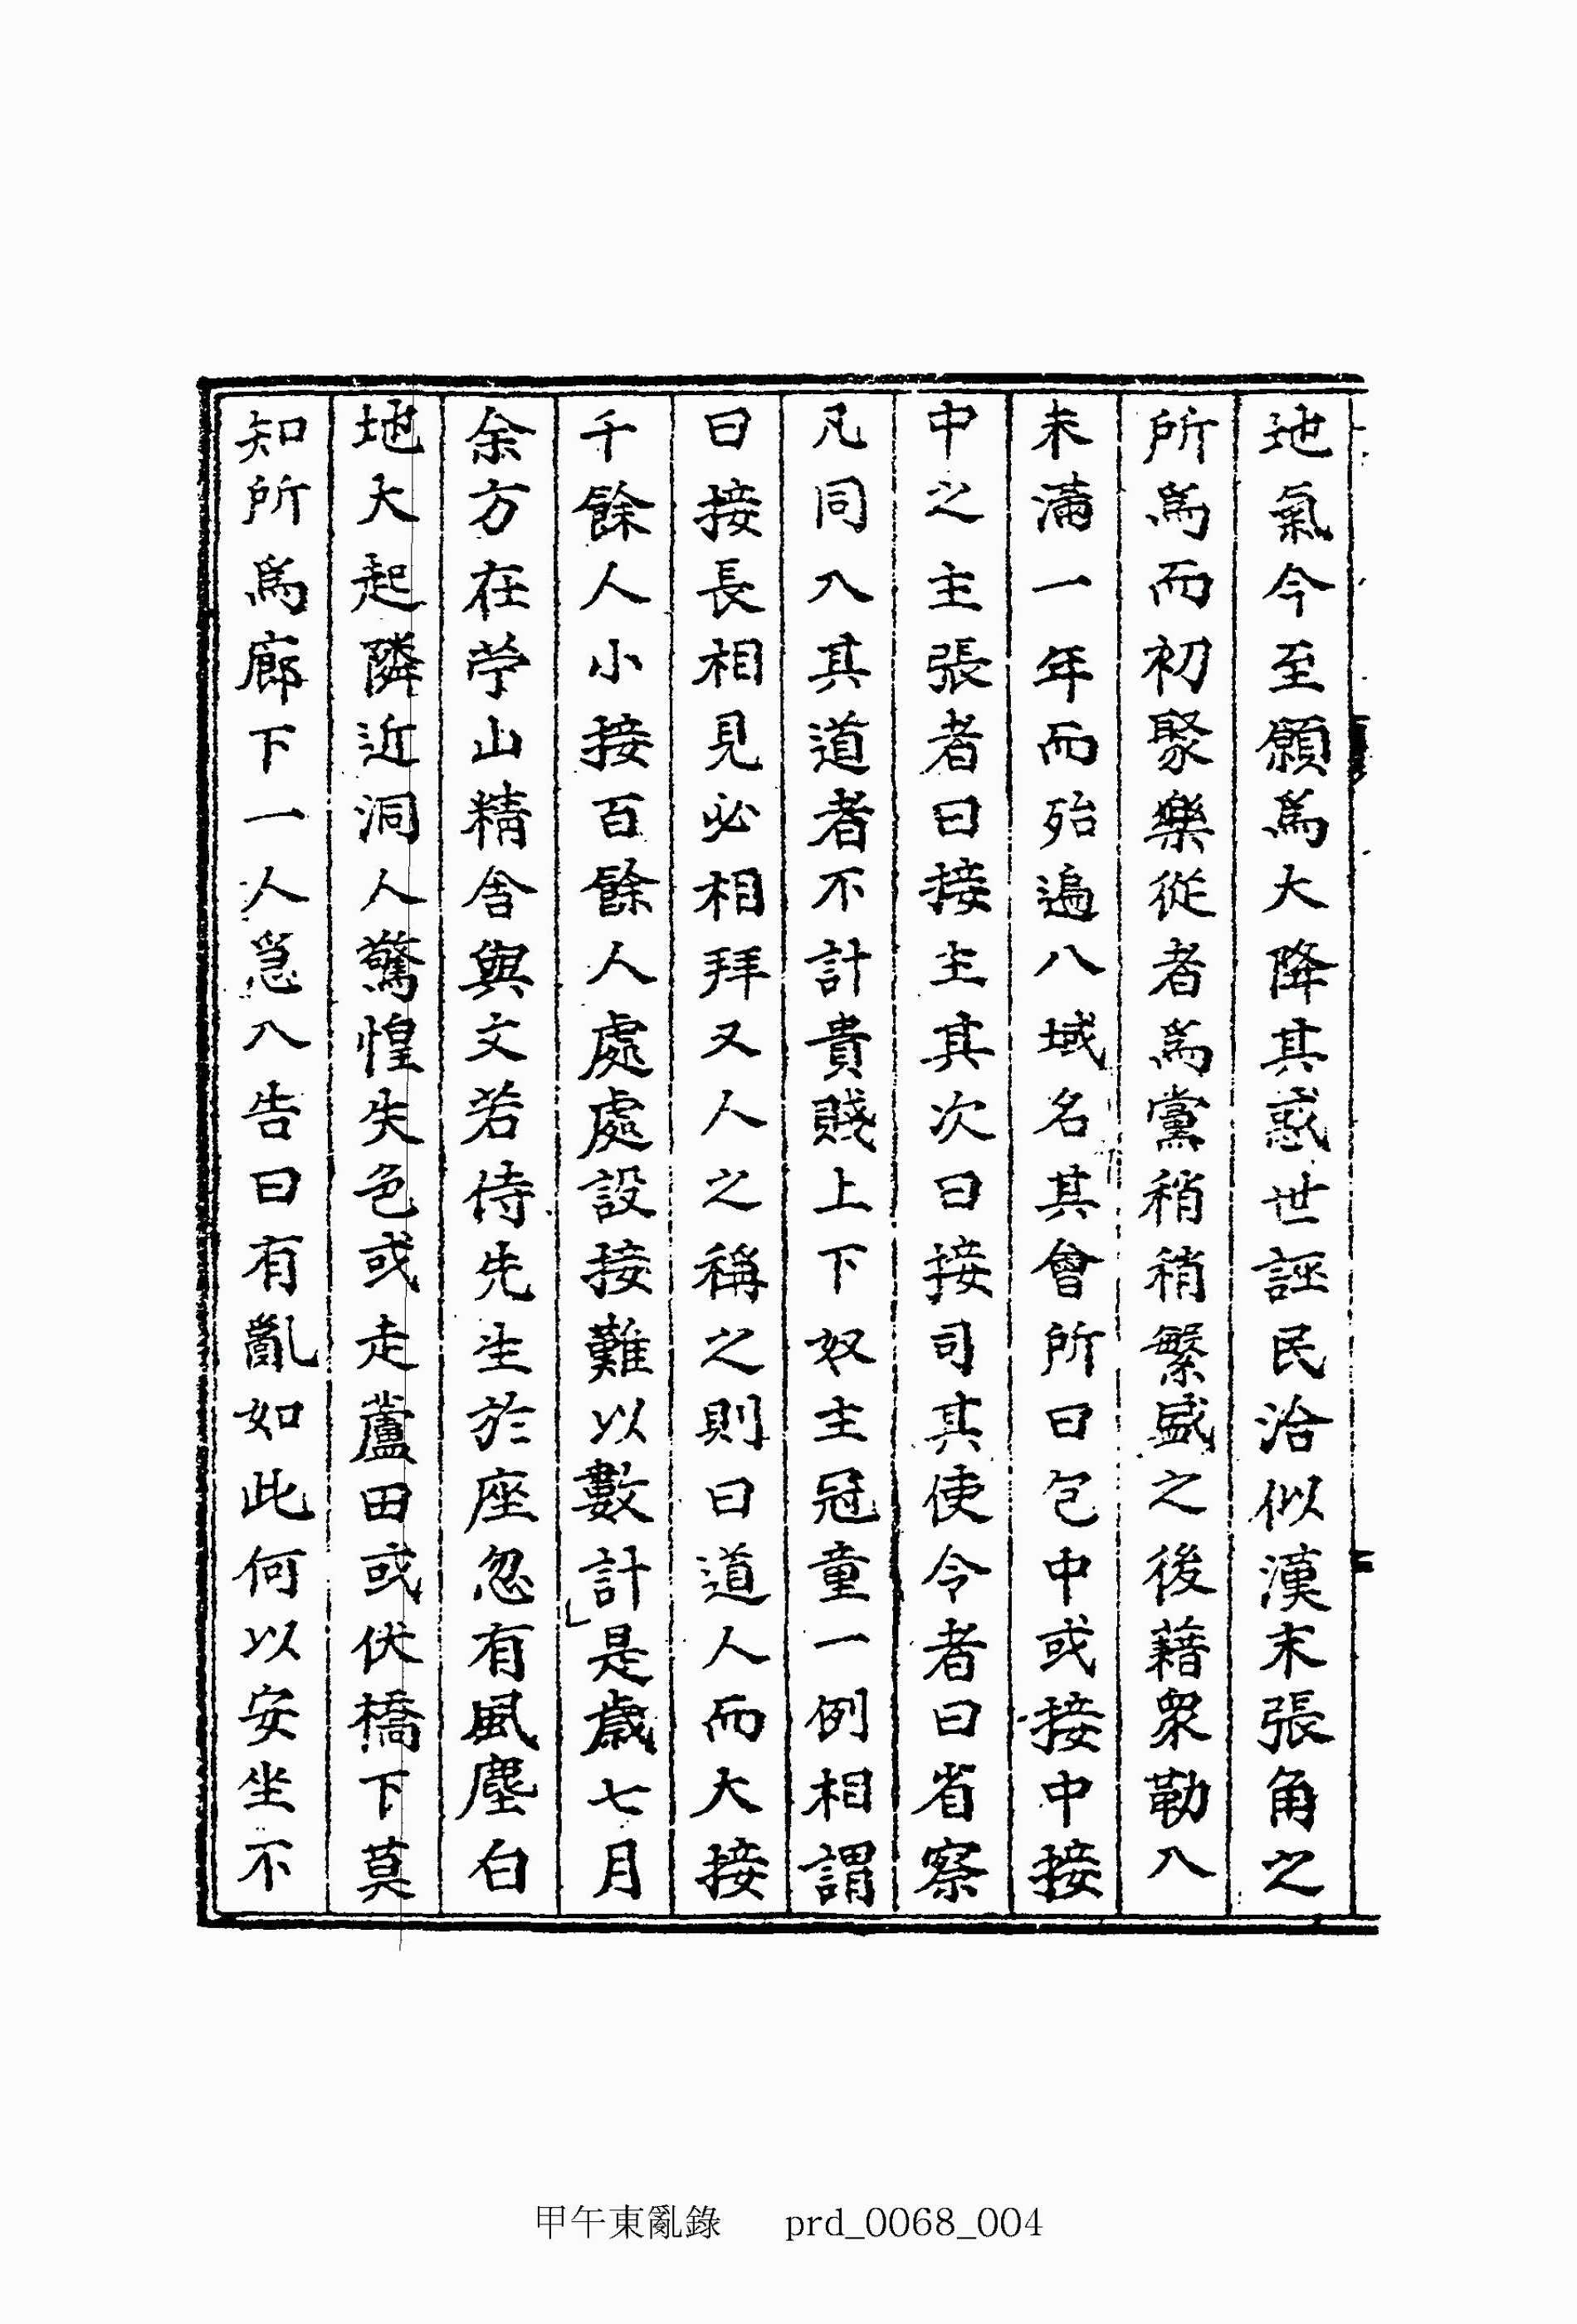 地氣今至願爲大降其惑世誣民治似漢末張角之
所爲而初聚樂從者爲黨稍稍繁盛之後藉衆勒入
未滿一年而殆遍八域名其會所曰包中或接中接
中之主張者曰接主其次曰接司其使令者曰省察
凡同入其道者不計貴賤上下奴主冠童一例相謂
曰接長相見必相拜又人之稱之則曰道人而大接
千餘人小接百餘人處處設接難以數計是歲七月
余方在苧山精舍與文若侍先生於座忽有風塵自
地大起隣近洞人驚惶失色或走蘆田或伏橋下莫
知所爲廊下一人急入告曰有亂如此何以安坐不
甲午東亂錄 prd_0068_004